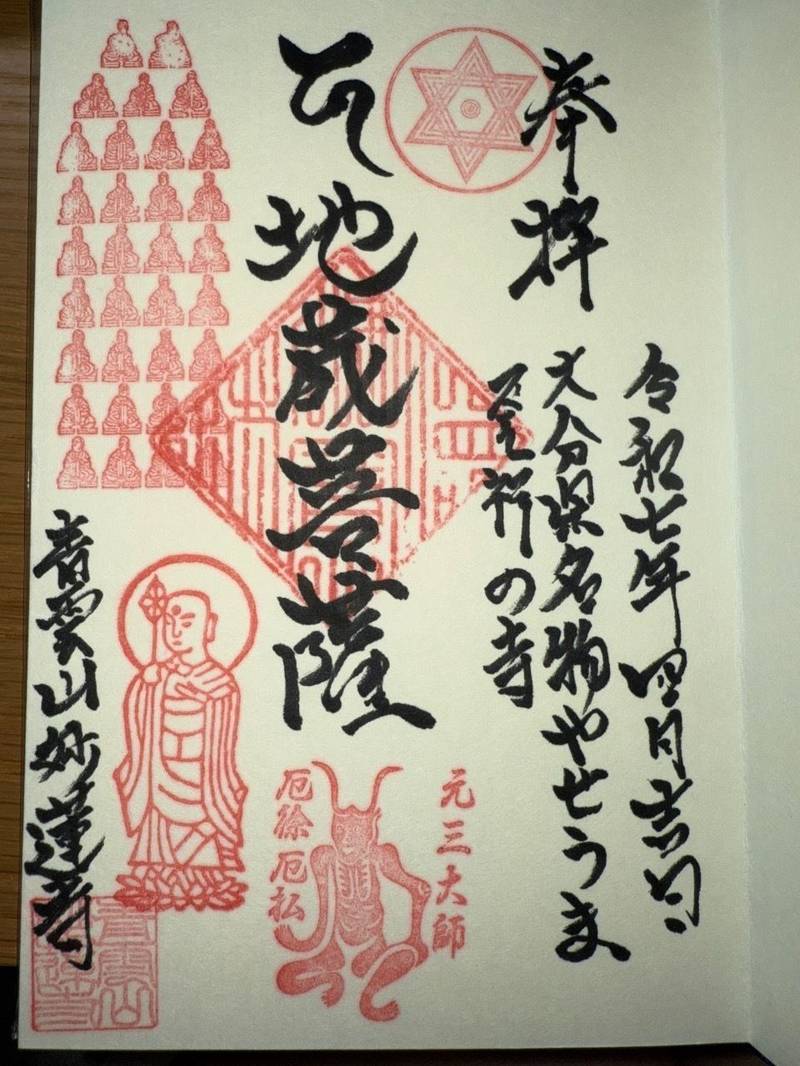 奉拝
令和七年四月吉日
大分県名物やせうま
発祥の寺
地蔵菩薩
元三大師
厄除厄払
青雲山妙蓮寺